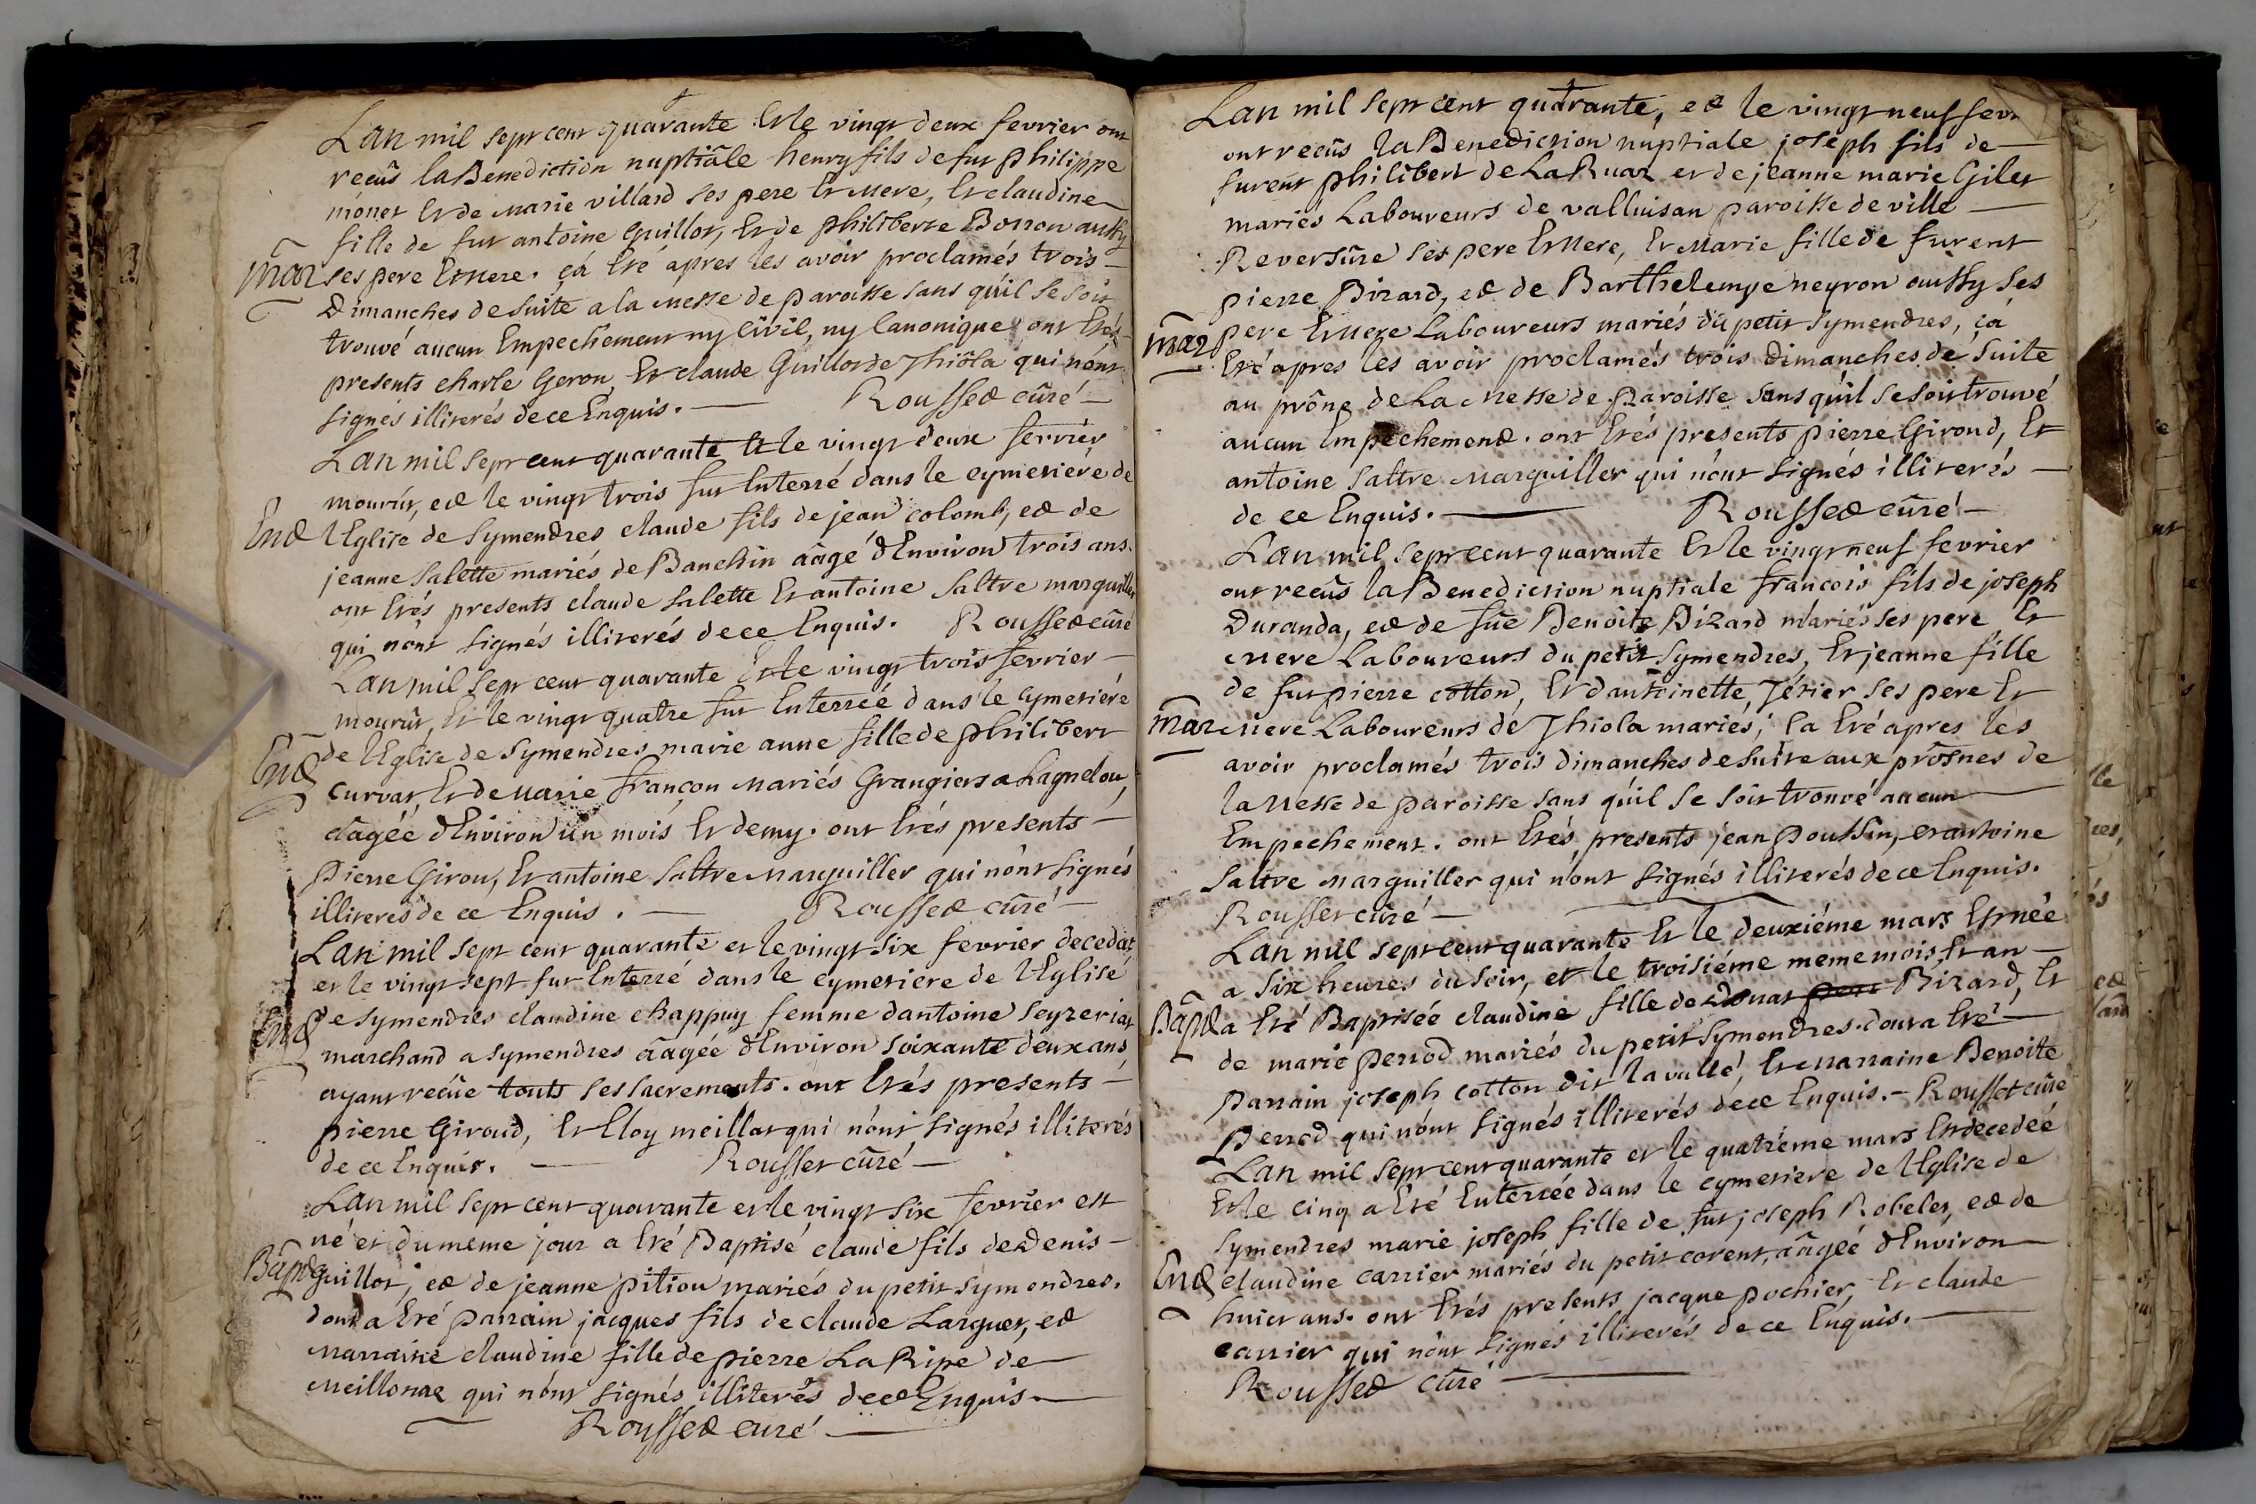 Lan mil sept cent quarante Et le vingt deux fevrier ont
recûs la Benediction nuptiâle henry fils de fut philippe
monet Et de marie villard ses pere Et Mere, Et claudine
fille de fut antoine Guillot, Et de philiberte Borron aussy
mar ses pere Et Mere. çà Eté apres les avoir proclamés trois
Dimanches de suite a la Messe de paroisse sans qúil se soit
trouvé aucun Empechement ny Civil, ny Canonique ont Etés
presents charle Geron, Et claude Guillot de Thiôla qui nónt
signés illiterés de ce Enquis. Rousset cûré
Lan mil sept cent quarante Et le vingt deux fevrier
mourût, et le vingt trois fut Enterré dans le cymetiere de
Ent L'Eglise de Symendres claude fils de jean colomb, et de
jeanne Salette mariés de Banchin aâgé d'Environ trois ans.
ont Etés presents claude Salette Et antoine Saltre marguiller
qui nónt signés illiterés de ce Enquis. Rousset cûré
Lan mil sept cent quarante Et le vingt trois fevrier
mourût, Et le vingt quatre fut Enterréé dans le Cymetiére
Ent de L'Eglise de Symendres marie anne fille de philibert
curvat, Et de marie françon mariés Grangiers a Lagnelou,
aâgéé d'Environ un mois Et demy. ont Etés presents
pierre Girou, Et antoine Saltre Marguiller qui nónt signés
illiterés de ce Enquis. Rousset cûré
Lan mil sept cent quarante et le vingt six fevrier decedat
et le vingt sept fut Enterré dans le cymetiere de L'Eglisé
Ent de symendres claudine chappuy femme dantoine Seyzeriat
marchand a symendres aâgéé d'Environ soixante deux ans
ayant recûe touts ses sacrements. ont Etés presents
pierre Giroud, Et Eloy meillat qui nónt signés illiterés
de ce Enquis. Rousset cûré
Lan mil sept cent quarante et le vingt six fevrier est
né et du meme jour a Eté Baptisé claude fils de Denis
Bapt Guillot, et de jeanne pitiou mariés du petit symendres.
dont a Eté parrain jacques fils de claude Larguet, et
Marraine claudine fille de pierre La Ripe de
Meillonaz qui nónt signés illiterés de ce Enquis
Rousset curé
Lan mil sept cent quatrante, et le vingt neuf fevr
ont recûs la Benediction nuptiale joseph fils de
furent philibert de La Ruaz et de jeanne marie Gilet
mariés Laboureurs de valluisan paroisse de ville
Reversûre ses pere Et Mere, Et Marie fille de furent
pierre Bizard, et de Barthelemye neyron aussy ses
mar pere Et Mere Laboureurs mariés du petit Symendres, ça
Eté apres les avoir proclamés trois Dimanches de suite
au prône de La Messe de paroisse sans qúil se soit trouvé
aucun Empechement. ont Etés presents pierre Giroud, Et
antoine Saltre Marguiller qui nónt signés illiterés
de ce Enquis. Rousset cûré
Lan mil sept cent quarante Et le vingt neuf fevrier
ont recûs la Benediction nuptiale francois fils de joseph
Duranda, et de füe Benoite Bizard mariés ses pere Et
Mere Laboureurs du petit Symendres, Et jeanne fille
de fut pierre cotton, Et dantoinette Tétier ses pere Et
mar Mere Laboureurs de Thiola mariés; ça Eté apres les
avoir proclamés trois dimanches de suite aux prosnes de
la Messe de paroisse sans qúil se soit trouvé aucun
Empechement. ont Etés presents jean poussin, et antoine
Saltre Marguiller qui nónt signés illiterés de ce Enquis.
Rousset cûré
Lan mil sept cent quarante Et le deuxiéme mars Est néé
a six heures du soir, et le troisiéme meme mois Et an
Bapt a Eté Baptiséé claudine fille de Donat perr Bizard, Et
de marie perrod mariés du petit Symendres. dont a Eté
parrain joseph cotton dit lavallé, Et Marraine Benoite
perrod qui nónt signés illiterés de ce Enquis. Rousset cûré
Lan mil sept cent quarante et le quatriéme mars Est decedéé
Et le cinq a Eté Enterréé dans le cymetiere de L'Eglise de
Symendres marie joseph fille de fut joseph Robelet, et de
Ent claudine carrier mariés du petit corent, aâgéé d'Environ
huict ans. ont Etés presents jacque pochier, Et claude
carrier qui nónt signés illiterés de ce Enquis.
Rousset cûré